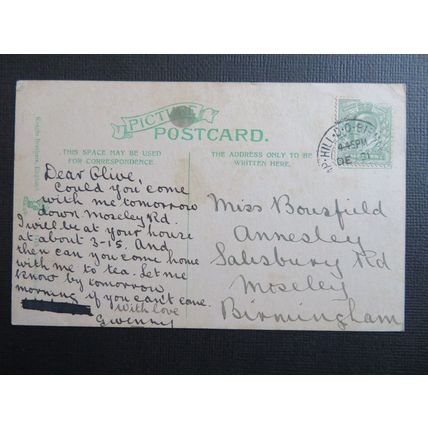 PICTURE
POSTCARD.
THIS SPACE MAY BE USED
FOR CORRESPONDENCE.
THE ADDRESS ONLY TO BE
WRITTEN HERE
4.45PM
DE 31
Dear Olive,
Could you come
with me tomorrow
down Moseley Rd.
I will be at your house
at about 3-15. And
then can you come home
with me to tea. Let me
know by tomorrow
morning if you can't come.
With love
Gwenny
Miss Bousfield
Annesley
Salisbury Rd
Moseley
Birmingham